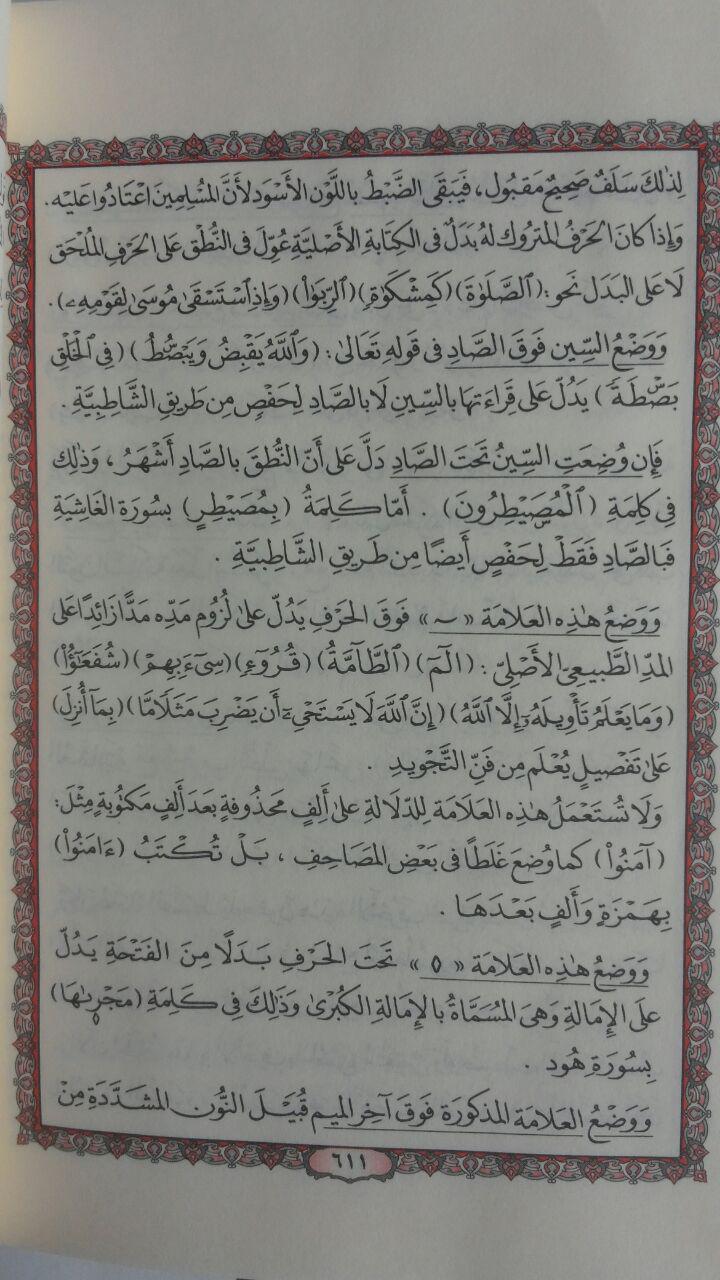 لِذٰلِكَ سَلَفٌ صَحِيحٌ مَقبُول، فَيَبْقَى الضَّبْطُ بِاللَّوْنِ الأَسْوَد لأَنَّ المُسْلِمِينَ اعْتَادُوا عَلَيْه.
وَإِذا كانَ الحَرْفُ المَتْرُوك لهُ بَدَلٌ فى الكِتَابَةِ الأَصْلِيَّةِ عُوِّلَ فى النُّطْقِ عَلَى الحَرْفِ المُلْحَق
لَا عَلى البَدَل نَحو: (ٱلصَّلَوٰةَ) (كَمِشْكَوٰةٍ) (ٱلرِّبَوٰا۟) (وَإِذِ ٱسْتَسْقَىٰ مُوسَىٰ لِقَوْمِهِۦ).
وَوَضْعُ السِّين فَوقَ الصَّادِ فى قَولِهِ تَعَالىٰ: (وَٱللَّهُ يَقْبِضُ وَيَبْصُۜطُ) (فِى ٱلْخَلْقِ
بَصْۜطَةً) يَدُلّ عَلى قِرَاءَتِهَا بالسِّينِ لَا بالصَّادِ لِحَفْصٍ مِن طَرِيقِ الشَّاطِبِيَّةِ.
فَإِن وُضِعَتِ السِّينُ تَحتَ الصَّادِ دَلَّ عَلى أَنَّ النُّطقَ بالصَّادِ أَشْهَرُ، وَذٰلِك
فِى كلِمَةِ (ٱلْمُصَۣيْطِرُونَ). أَمّا كَلِمَةُ (بِمُصَيْطِرٍ) بسُورَةِ الغَاشِيَةِ
فَبالصَّادِ فَقَطْ لِحَفْصٍ أَيضًا مِن طَرِيقِ الشَّاطِبِيَّةِ.
وَوَضعُ هٰذِهِ العَلامَة «ـٓ» فَوقَ الحَرْفِ يَدُلّ عَلىٰ لُزُوم مَدِّه مَدًّا زَائِدًا عَلى
المدِّ الطَّبِيعِىّ الأَصْلِىّ: (الٓمٓ) (ٱلطَّآمَّةُ) (قُرُوٓءٍ) (سِىٓءَ بِهِمْ) (شُفَعَٰٓؤُا۟)
(وَمَا يَعْلَمُ تَأْوِيلَهُۥٓ إِلَّا ٱللَّهُ) (إِنَّ ٱللَّهَ لَا يَسْتَحْىِۦٓ أَن يَضْرِبَ مَثَلًا مَّا) (بِمَآ أُنزِلَ)
عَلىٰ تَفْصِيلٍ يُعْلَم مِن فَنِّ التَّجْوِيدِ.
وَلَا تُستَعْمَلُ هٰذِهِ العَلَامَة لِلدّلَالَةِ عَلىٰ أَلِفٍ مَحذُوفَةٍ بَعدَ أَلِفٍ مَكتُوبَةٍ مِثْلَ:
(آمَنُوا۟) كما وُضعَ غَلَطًا فى بَعْضِ المَصَاحِفِ، بَلْ تُكْتَبُ (ءَامَنُوا۟)
بِهَمْزَةٍ وَأَلِفٍ بَعْدَهَا.
وَوَضْعُ هٰذِهِ العَلَامَة «٥» تَحتَ الحَرْفِ بَدَلًا مِنَ الفَتْحَةِ يَدُلّ
عَلى الإِمَالَةِ وَهِىَ المُسَمَّاةُ بالإِمَالَةِ الكُبْرَىٰ وَذَٰلِكَ فِى كَلِمَةِ (مَجْر۪ىٰهَا)
بِسُورَةِ هُود.
وَوَضْعُ العَلَامَة المذكُورَة فَوقَ آخِرِ الميم قُبَيْلَ النُّون المشَدَّدَةِ مِنْ
٦١١